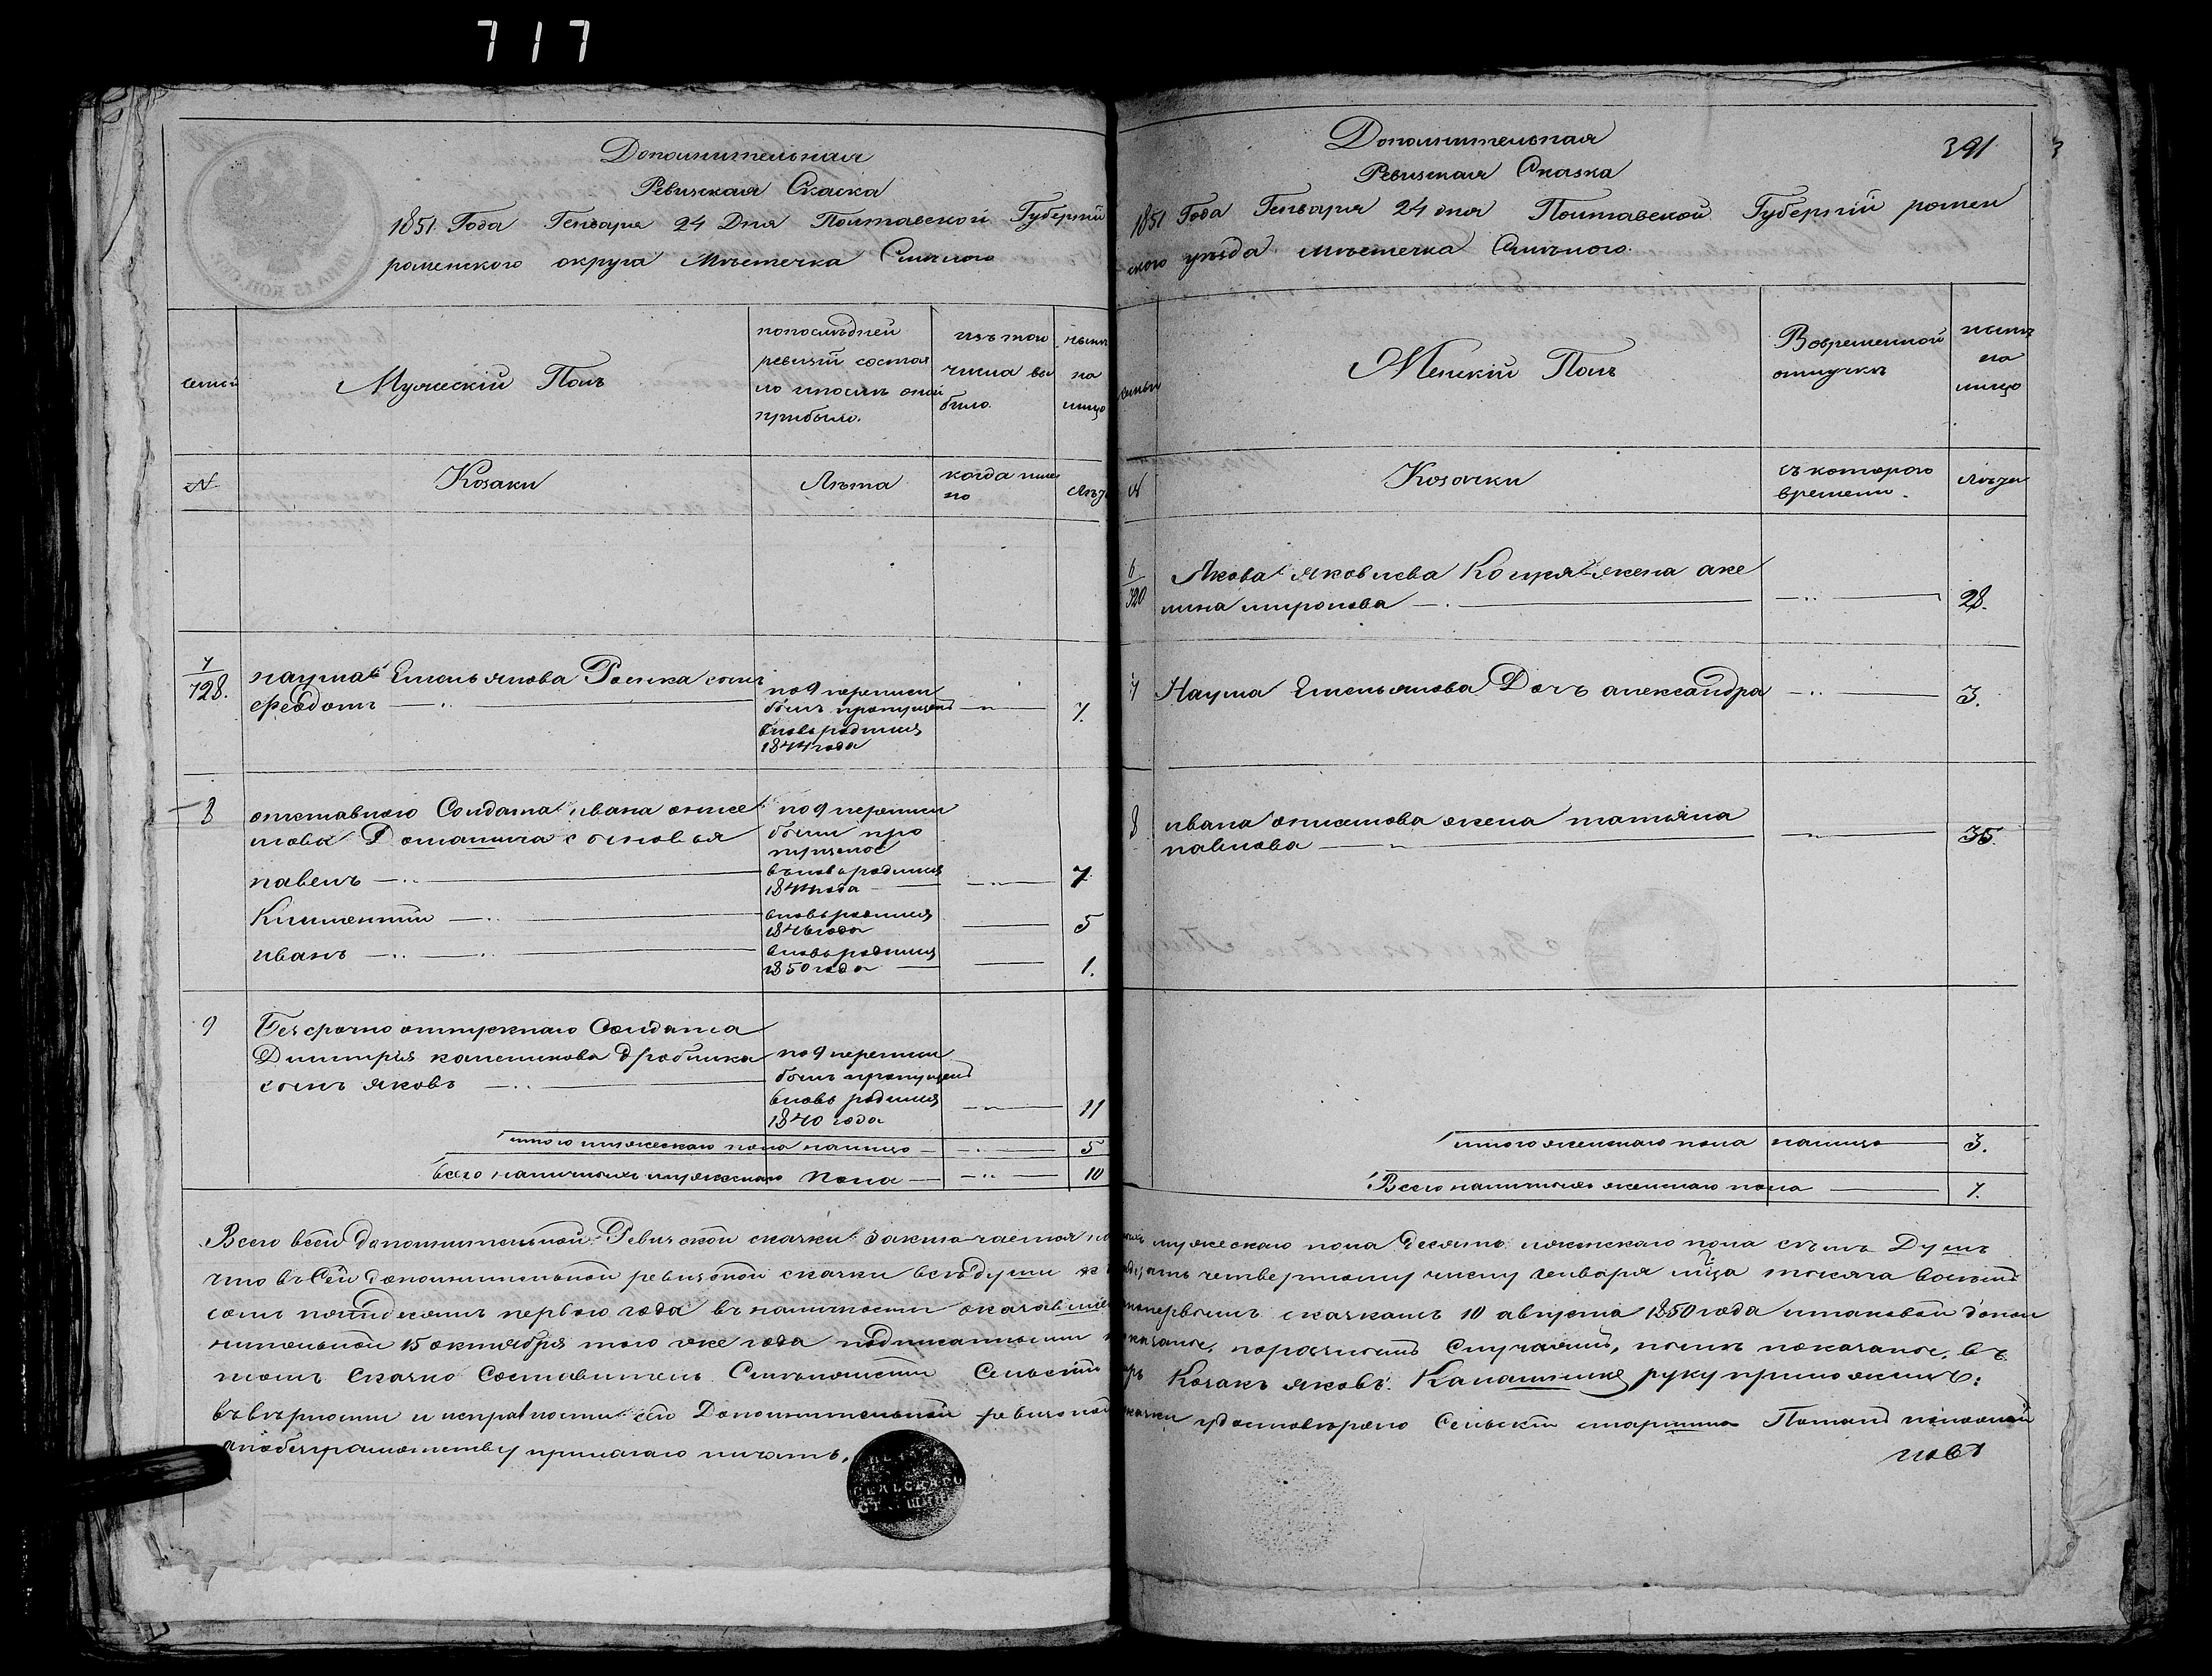 717
Дополнительная
Ревизская Скаска
1851. Года Генваря 24 Дня Полтавской Губерніи
роменского округа Мѣстечка Смѣлого
семьи
Мужескій Полъ
попослѣдней
ревизіи состоя
ло ипослѣ оной
прибыло.
изъ того
числа вы
было.
нынѣ
на
лицо
№
Козаки
Лѣта
когда имен
но
Лѣта
7/728.
наума Емельянова Роенка сынъ
Феодотъ
по 9 переписи
былъ пропущенъ
вновь родился
1844 года
7.
8
отставного Солдата ивана
Домашича сыновья
по 9 переписи
были про
пущеные
павелъ
вновь родился
1844 года
7
Климентій
вновь родился
1846 года
5
иванъ
вновь родился
1850 года
1.
9
Безсрочно отпускнаго Солдата
Димитрія дробишка
сынъ яковъ
по 9 переписи
былъ пропущенъ
вновь родился
1840 года
11
итого мужескаго пола налицо
5
всего наличныхъ мужескаго пола
10
Дополнительная
Ревизская Сказка
391
1851 Года Генваря 24 дня Полтавской Губерніи ромен
ского уѣзда мѣстечка Смѣлого.
семьи
Женскій Полъ
Вовременной
отлучкѣ
нынѣ
на
лицо
№
Козачки
съ которого
времени.
Лѣта
6/720
Якова яковлева жена аке
лина миронова
28.
7
Наума Емельянова Дочь александра
3.
8
ивана жена татьяна
павлова
35.
итого женскаго пола налицо
3.
Всего наличныхъ женскаго пола
7.
Всего всей дополнительной Ревизской сказки заключается мужескаго пола десять иженскаго пола семь Душъ
что въ Сей дополнительной ревизской сказки всѣ души четвертому числу генваря мца тысяча восемъ
сотъ пятдесятъ первого года въ наличности попервымъ сказкамъ 10 августа 1850 года итаковой допол
нительной 15 октября того же года подписаннымъ поразнымъ Случаямъ, ноинъ показаное, въ
томъ Сказко Составитель Смѣлянскій Сельскій Козакъ яковъ руку приложилъ:
въ вѣрности и исправности сей Дополнительной ревизской сказки удостовѣряю Сельскій старшина Потапъ
анобезграмотству прилагаю печать.